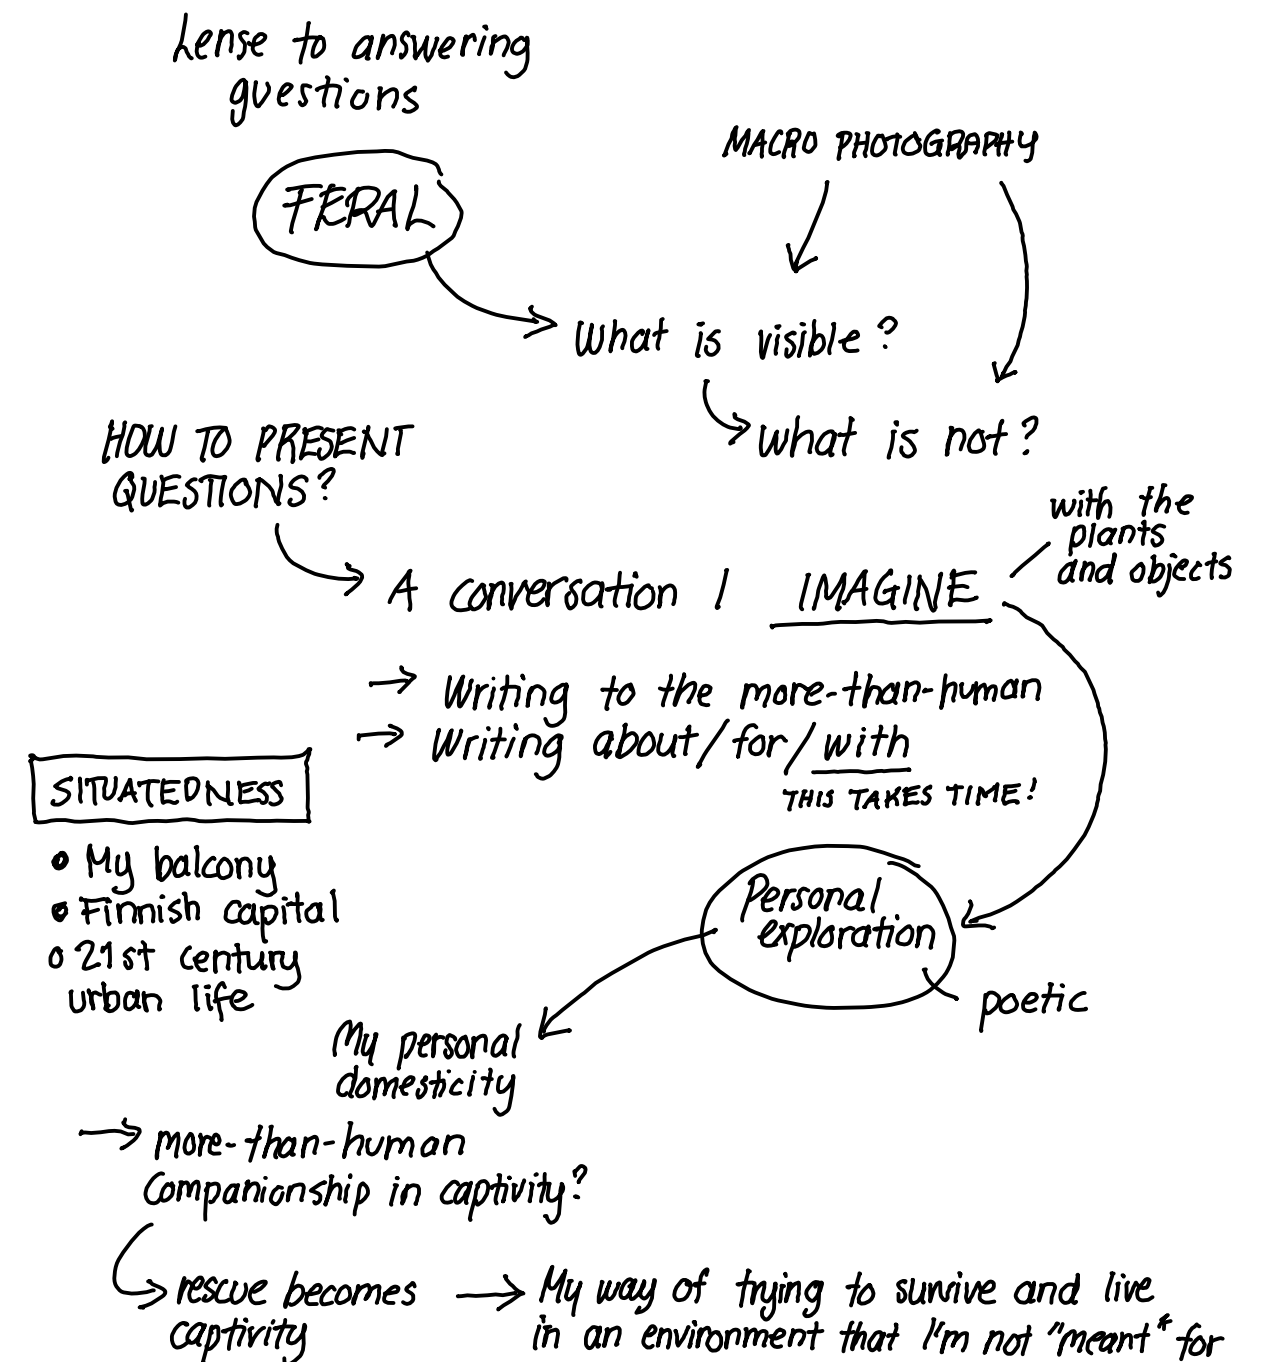 Lense to answering
questions
FERAL
MACRO PHOTOGRAPHY
What is visible?
What is not?
HOW TO PRESENT
QUESTIONS?
with the
plants
and objects
A conversation I IMAGINE
→ Writing to the more-than-human
→ Writing about/for/with
THIS TAKES TIME!
SITUATEDNESS
• My balcony
• Finnish capital
• 21st century
urban life
Personal
exploration
poetic
My personal
domesticity
→ more-than-human
Companionship in captivity?
rescue becomes
captivity
→ My way of trying to survive and live
in an environment that I'm not "meant" for